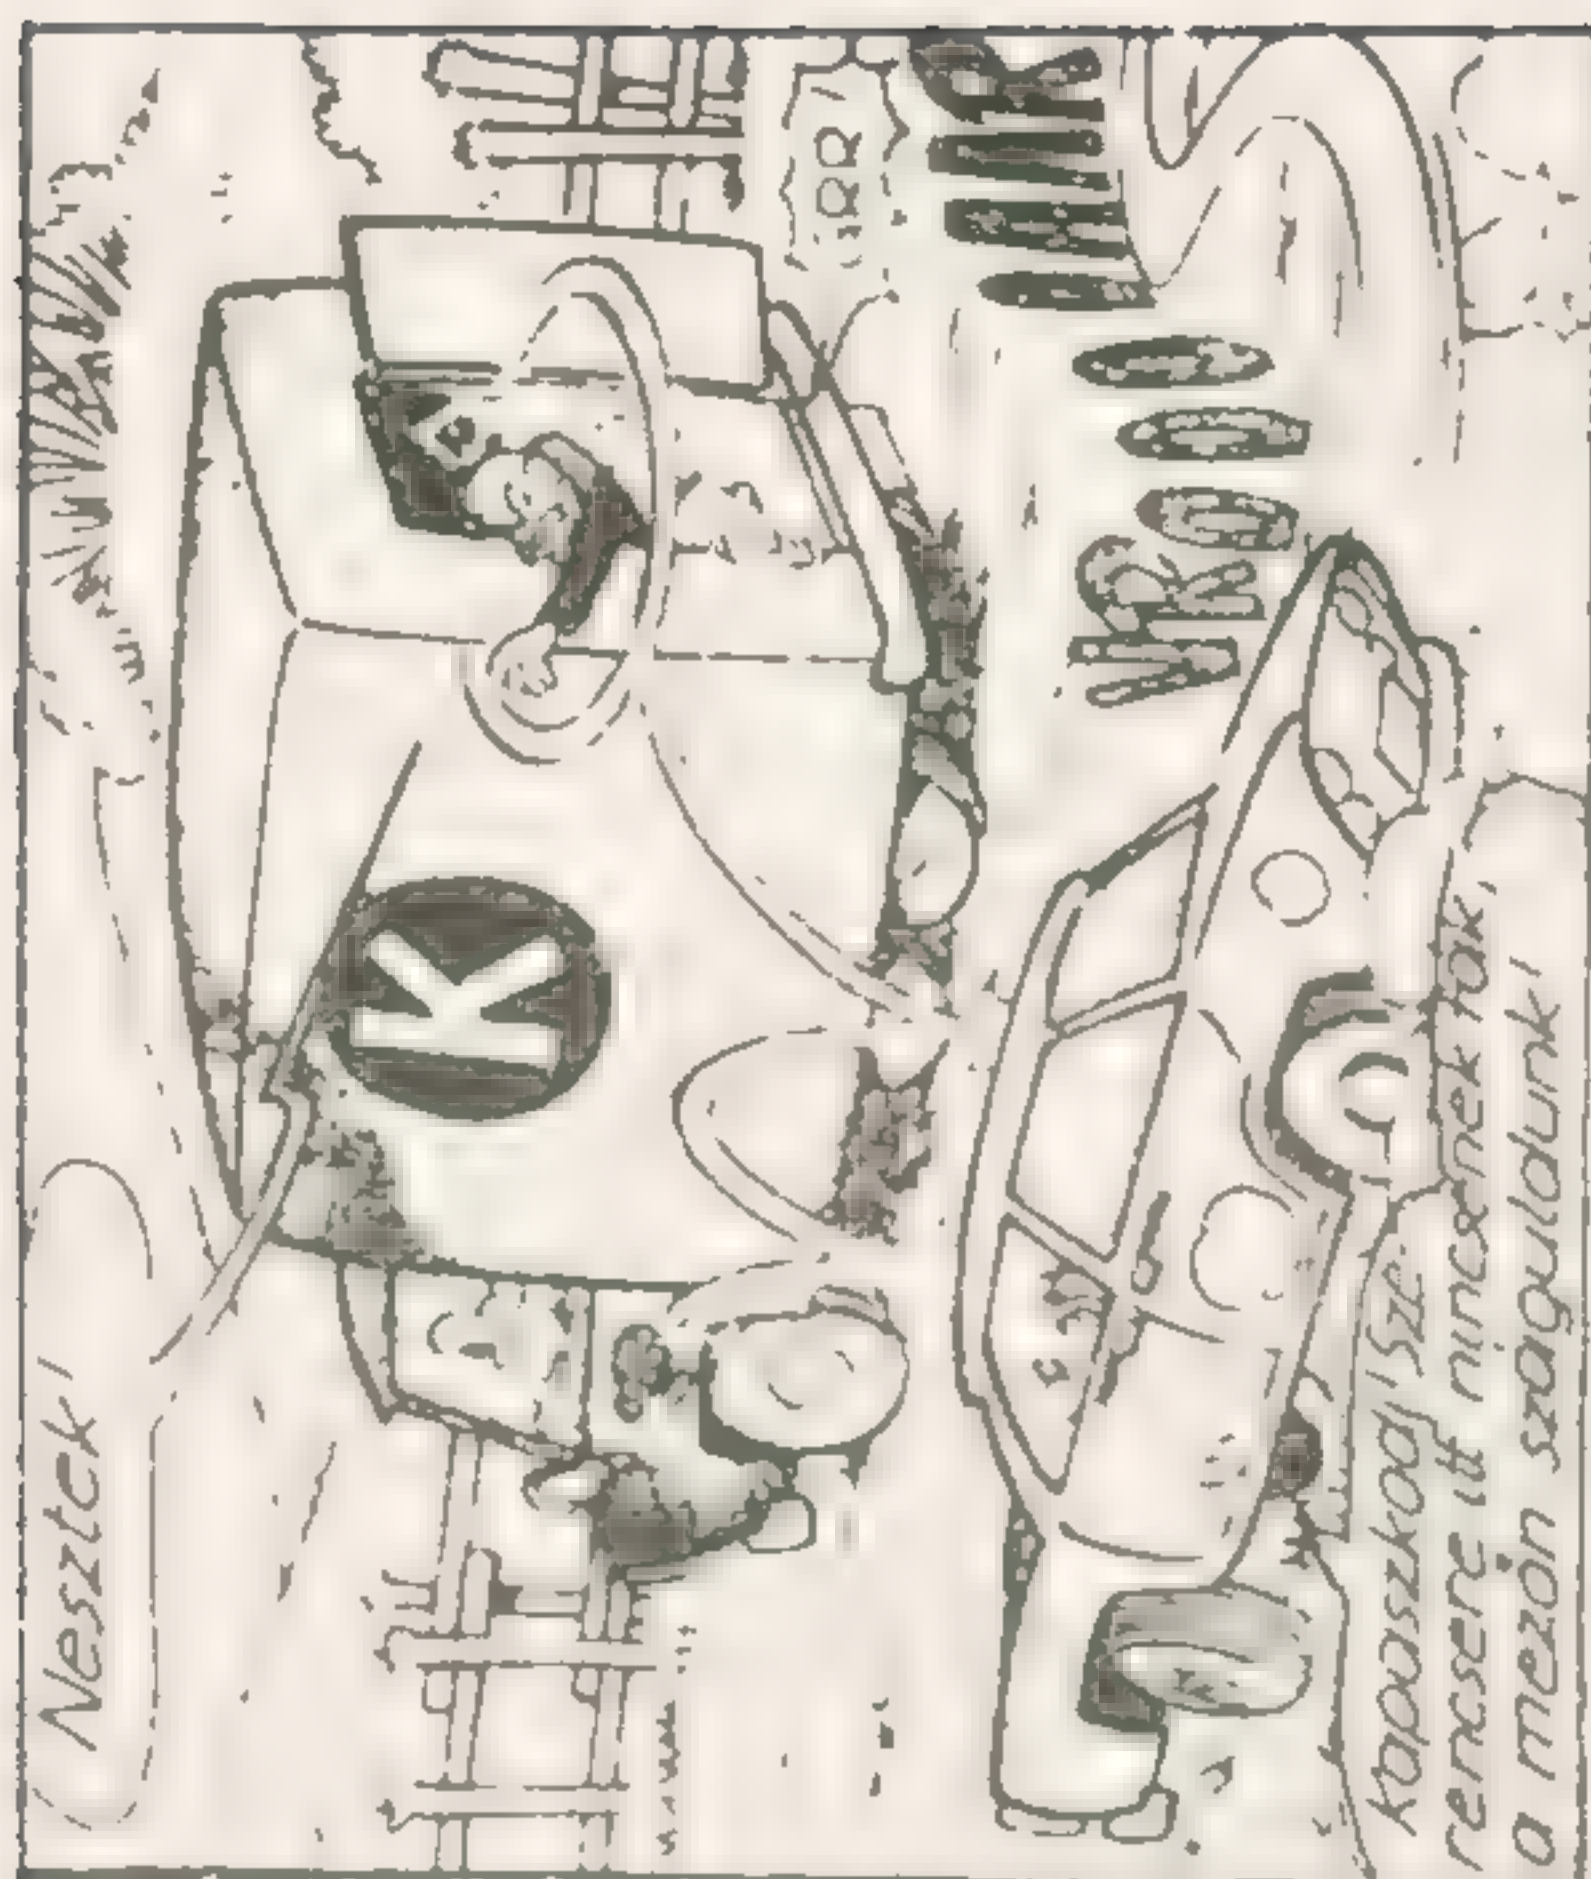 Nesztek!
K
Kapaszkodj! Sze-
rencsére itt nincsenek fák,
a mezőn száguldunk!